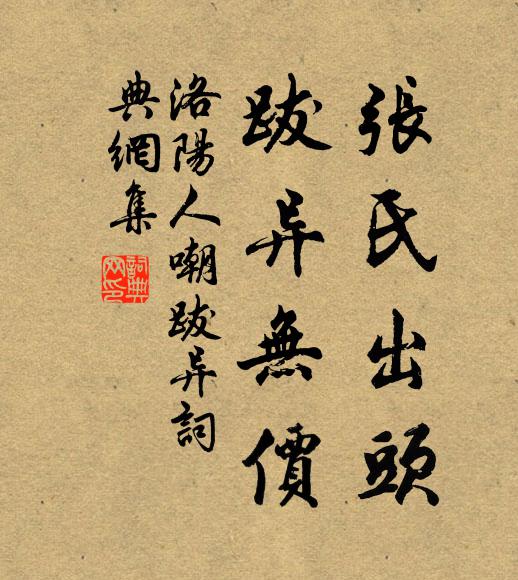 張氏出頭
跋异無價
洛陽人嘲跋异詞
典網集
詞典
网印